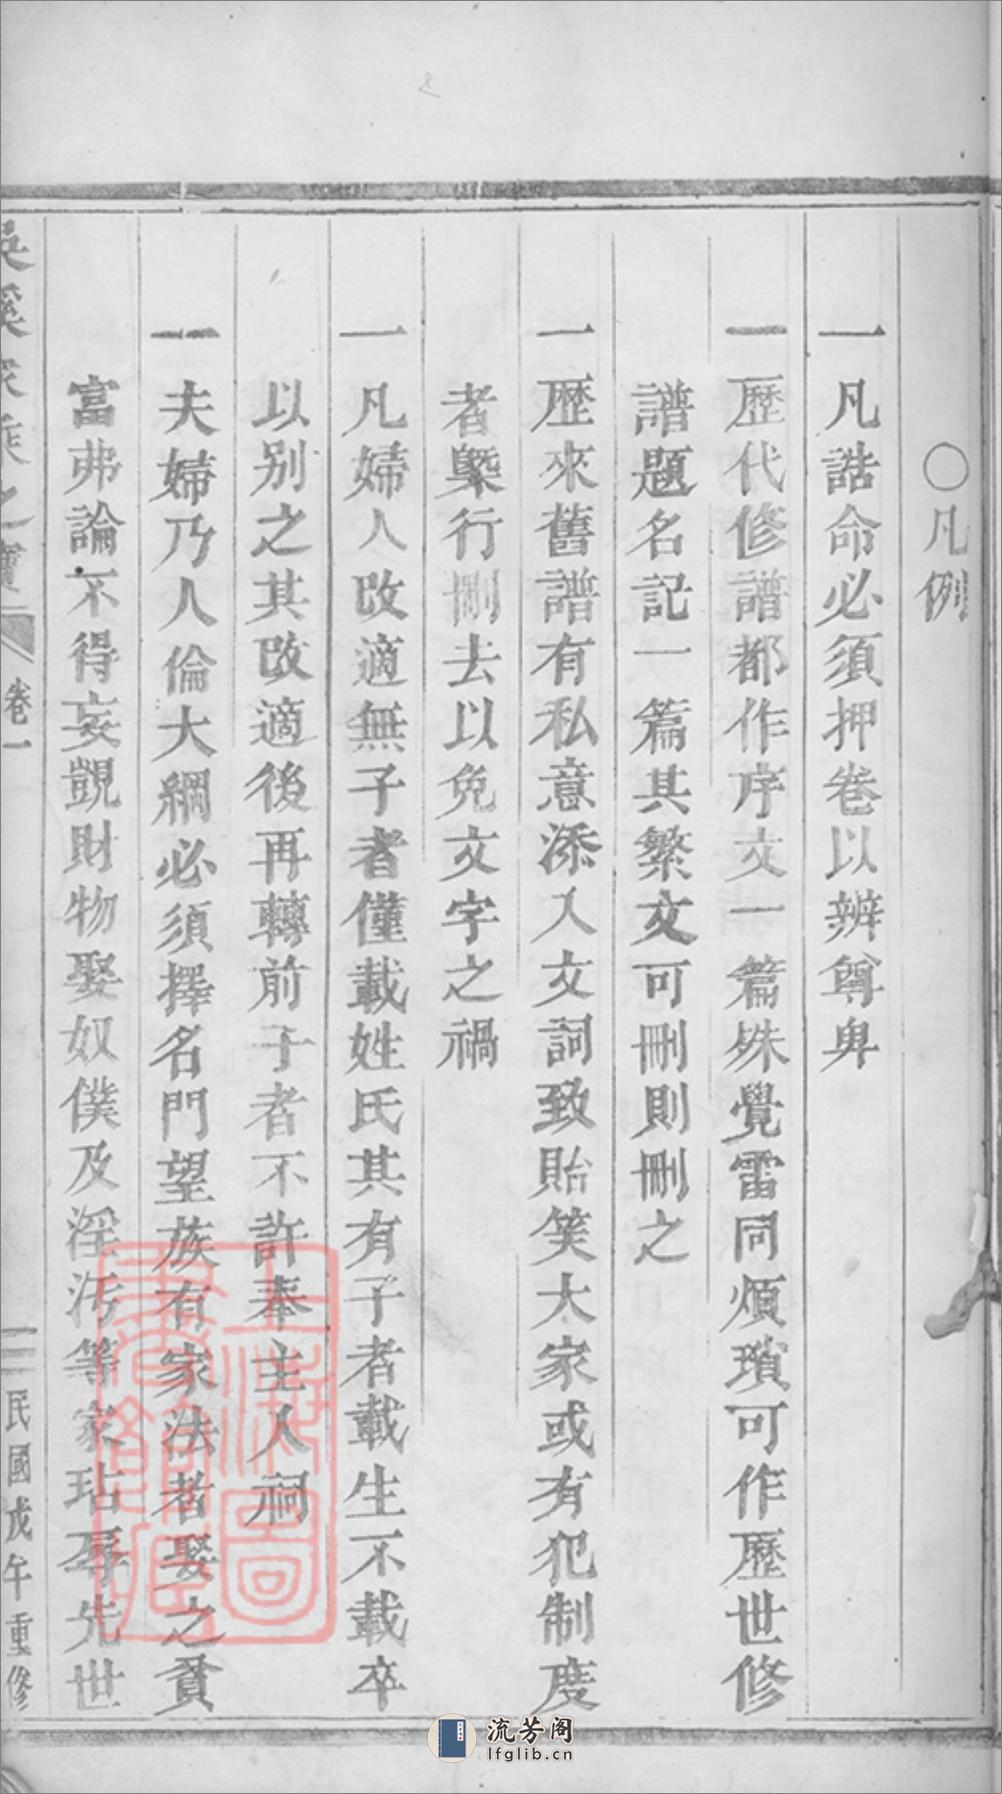 ○凡例
一凡誥命必須押卷以辨尊卑
一歷代修譜都作序文一篇殊覺雷同煩瑣可作歷世修
譜題名記一篇其繁文可刪則刪之
一歷來舊譜有私意添入文詞致貽笑大家或有犯制度
者槩行刪去以免文字之禍
一凡婦人改適無子者僅載姓氏其有子者載生不載卒
以别之其改適後再轉前子者不許奉主人祠
一夫婦乃人倫大綱必須擇名門望族有家法者娶之貧
富弗論不得妄覬財物娶奴僕及淫汚等家玷辱先世
卷一
民國戊午重修
上海圖書館藏
流芳阁
lfglib.cn